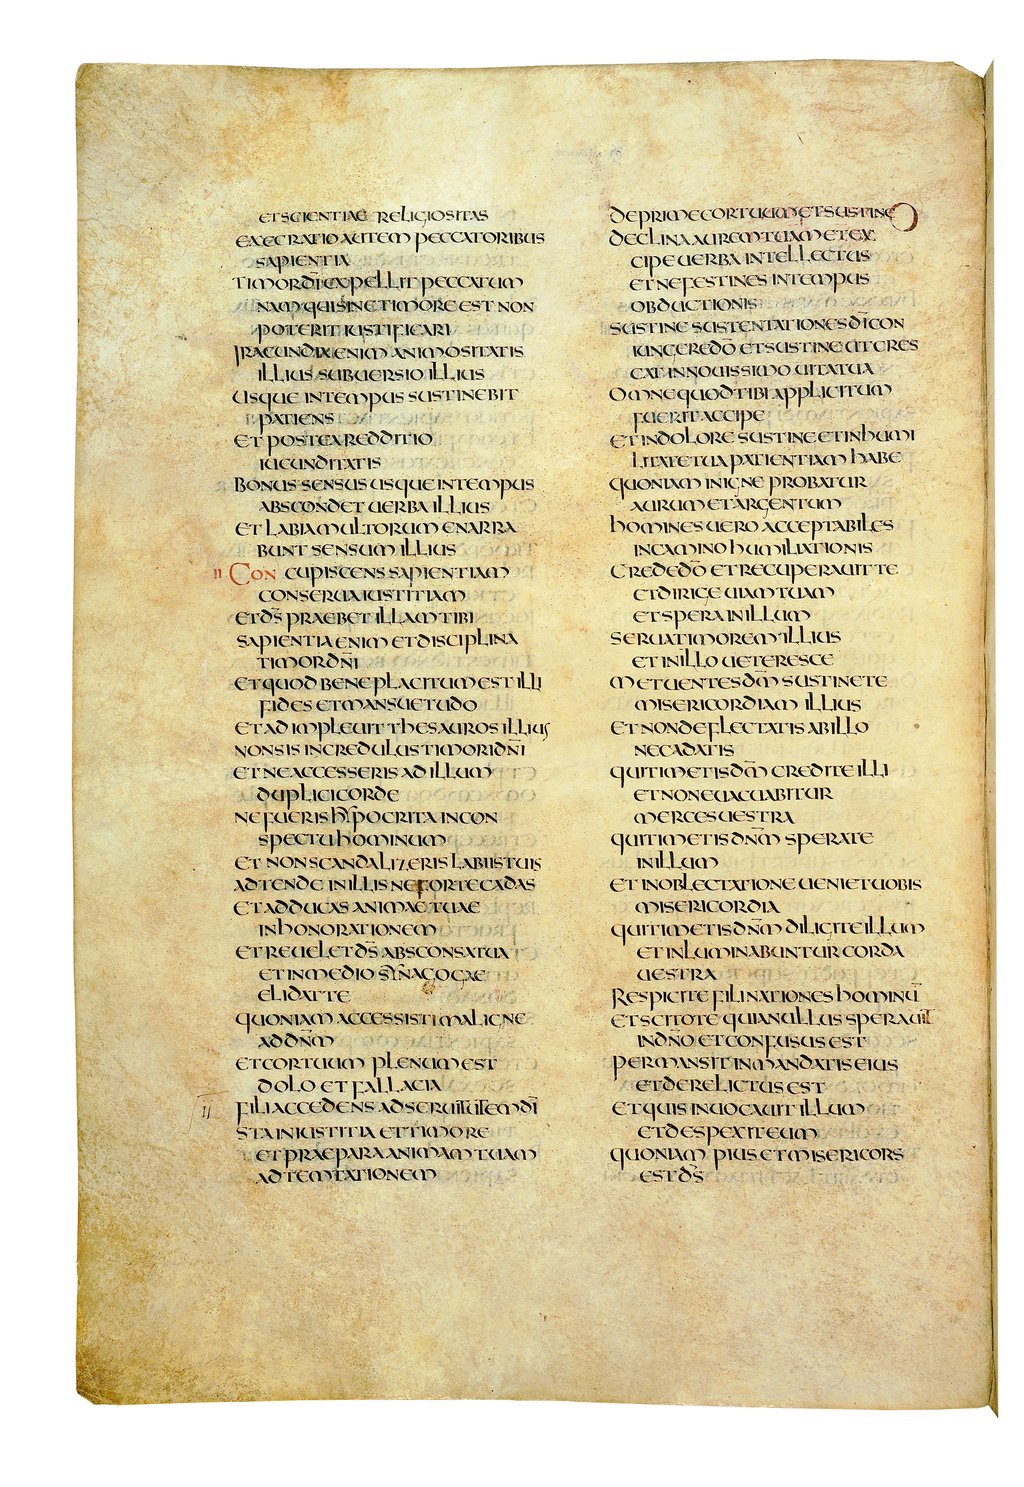 ET SCIENTIAE RELIGIOSITAS
EXECRATIO AUTEM PECCATORIBUS
SAPIENTIA
TIMOR DN̄I EXPELLIT PECCATUM
NAM QUI SINE TIMORE EST NON
POTERIT IUSTIFICARI
IRACUNDIA ENIM ANIMOSITATIS
ILLIUS SUBUERSIO ILLIUS
USQUE IN TEMPUS SUSTINEBIT
PATIENS
ET POSTEA REDDITIO
IUCUNDITATIS
BONUS SENSUS USQUE IN TEMPUS
ABSCONDET UERBA ILLIUS
ET LABIA MULTORUM ENARRA
BUNT SENSUM ILLIUS
II CONCUPISCENS SAPIENTIAM
CONSERUA IUSTITIAM
ET DS̄ PRAEBET ILLAM TIBI
SAPIENTIA ENIM ET DISCIPLINA
TIMOR DN̄I
ET QUOD BENEPLACITUM EST ILLI
FIDES ET MANSUETUDO
ET ADIMPLEUIT THESAUROS ILLIUS
NON SIS INCREDULUS TIMORI DN̄I
ET NE ACCESSERIS AD ILLUM
DUPLICI CORDE
NE FUERIS HYPOCRITA IN CON
SPECTU HOMINUM
ET NON SCANDALIZERIS LABIIS TUIS
ADTENDE IN ILLIS NE FORTE CADAS
ET ADDUCAS ANIMAE TUAE
INHONORATIONEM
ET REUELET DS̄ ABSCONSA TUA
ET IN MEDIO SYNAGOGAE
ELIDAT TE
QUONIAM ACCESSISTI MALIGNE
AD DN̄M
ET COR TUUM PLENUM EST
DOLO ET FALLACIA
II FILI ACCEDENS AD SERUITUTEM DĪ
STA IN IUSTITIA ET TIMORE
ET PRAEPARA ANIMAM TUAM
AD TEMTATIONEM
DEPRIME COR TUUM ET SUSTINE
DECLINA AUREM TUAM ET EX
CIPE UERBA INTELLECTUS
ET NE FESTINES IN TEMPUS
OBDUCTIONIS
SUSTINE SUSTENTATIONES DĪ CON
IUNGERE DŌ ET SUSTINE UT CRES
CAT IN NOUISSIMO UITA TUA
OMNE QUOD TIBI APPLICITUM
FUERIT ACCIPE
ET IN DOLORE SUSTINE ET IN HUMI
LITATE TUA PATIENTIAM HABE
QUONIAM IN IGNE PROBATUR
AURUM ET ARGENTUM
HOMINES UERO ACCEPTABILES
IN CAMINO HUMILIATIONIS
CREDE DŌ ET RECUPERAUIT TE
ET DIRIGE UIAM TUAM
ET SPERA IN ILLUM
SERUA TIMOREM ILLIUS
ET IN ILLO UETERESCE
METUENTES DM̄ SUSTINETE
MISERICORDIAM ILLIUS
ET NON DEFLECTATIS AB ILLO
NE CADATIS
QUI TIMETIS DM̄ CREDITE ILLI
ET NON EUACUABITUR
MERCES UESTRA
QUI TIMETIS DN̄M SPERATE
IN ILLUM
ET IN OBLECTATIONE UENIET UOBIS
MISERICORDIA
QUI TIMETIS DN̄M DILIGITE ILLUM
ET INLUMINABUNTUR CORDA
UESTRA
RESPICITE FILI NATIONES HOMINŪ
ET SCITOTE QUIA NULLUS SPERAUIT
IN DN̄O ET CONFUSUS EST
PERMANSIT IN MANDATIS EIUS
ET DERELICTUS EST
ET QUIS INUOCAUIT ILLUM
ET DESPEXIT EUM
QUONIAM PIUS ET MISERICORS
EST DS̄